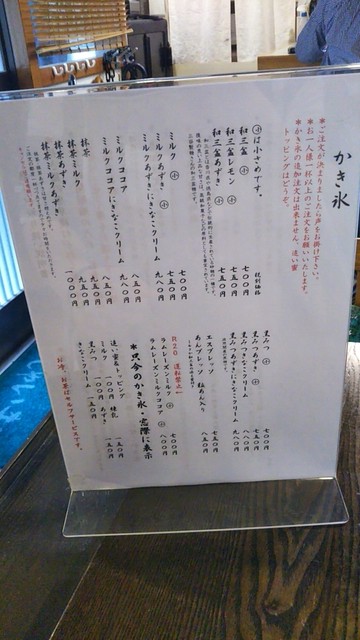 かき氷
*ご注文が決まりましたら声をお掛け下さい。
*お一人様一杯以上のご注文をお願いいたします。
*かき氷の追加注文は出来ません、追い蜜
トッピングはどうぞ。
小は小さめです。
税別価格
和三盆 小 七〇〇円
和三盆レモン 小 七五〇円
和三盆あずき 小 七五〇円
ミルク 小 七〇〇円
ミルクあずき 小 七五〇円
ミルクあずきにきなこクリーム 九八〇円
ミルクココア 八五〇円
ミルクココアにきなこクリーム 九八〇円
抹茶 八五〇円
抹茶ミルク 九五〇円
抹茶あずき 九五〇円
抹茶ミルクあずき 一〇〇〇円
黒みつ 小 七〇〇円
黒みつあずき 小 七五〇円
黒みつきなこクリーム 八八〇円
黒みつあずきにきなこクリーム 九八〇円
エスプレッソ 七五〇円
あんプレッソ 粒あん入り 八五〇円
R20 運転禁止!
ラムレーズンミルク 小 七〇〇円
ラムレーズンミルクココア 小 八〇〇円
*只今のかき氷・窓際に表示
追い蜜&トッピング
ミルク 一〇〇円 練乳 一五〇円
黒みつ 一〇〇円 あずき 一五〇円
きなこクリーム 二五〇円
お冷、お茶はセルフサービスです。